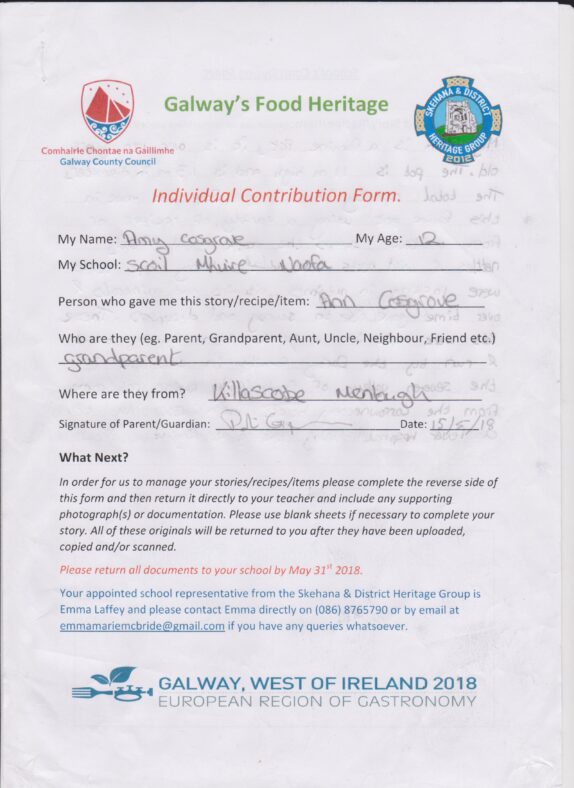 Comhairle Chontae na Gaillimhe
Galway County Council
Galway's Food Heritage
SKEHANA & DISTRICT
HERITAGE GROUP
2012
Individual Contribution Form.
My Name: Amy Cosgrove My Age: 12
My School: Scoil Mhuire Naofa
Person who gave me this story/recipe/item: Ann Cosgrove
Who are they (eg. Parent, Grandparent, Aunt, Uncle, Neighbour, Friend etc.)
grandparent
Where are they from? Killascobe Menlough
Signature of Parent/Guardian: Date: 15/5/18
What Next?
In order for us to manage your stories/recipes/items please complete the reverse side of
this form and then return it directly to your teacher and include any supporting
photograph(s) or documentation. Please use blank sheets if necessary to complete your
story. All of these originals will be returned to you after they have been uploaded,
copied and/or scanned.
Please return all documents to your school by May 31st 2018.
Your appointed school representative from the Skehana & District Heritage Group is
Emma Laffey and please contact Emma directly on (086) 8765790 or by email at
emmamariemcbride@gmail.com if you have any queries whatsoever.
GALWAY, WEST OF IRELAND 2018
EUROPEAN REGION OF GASTRONOMY